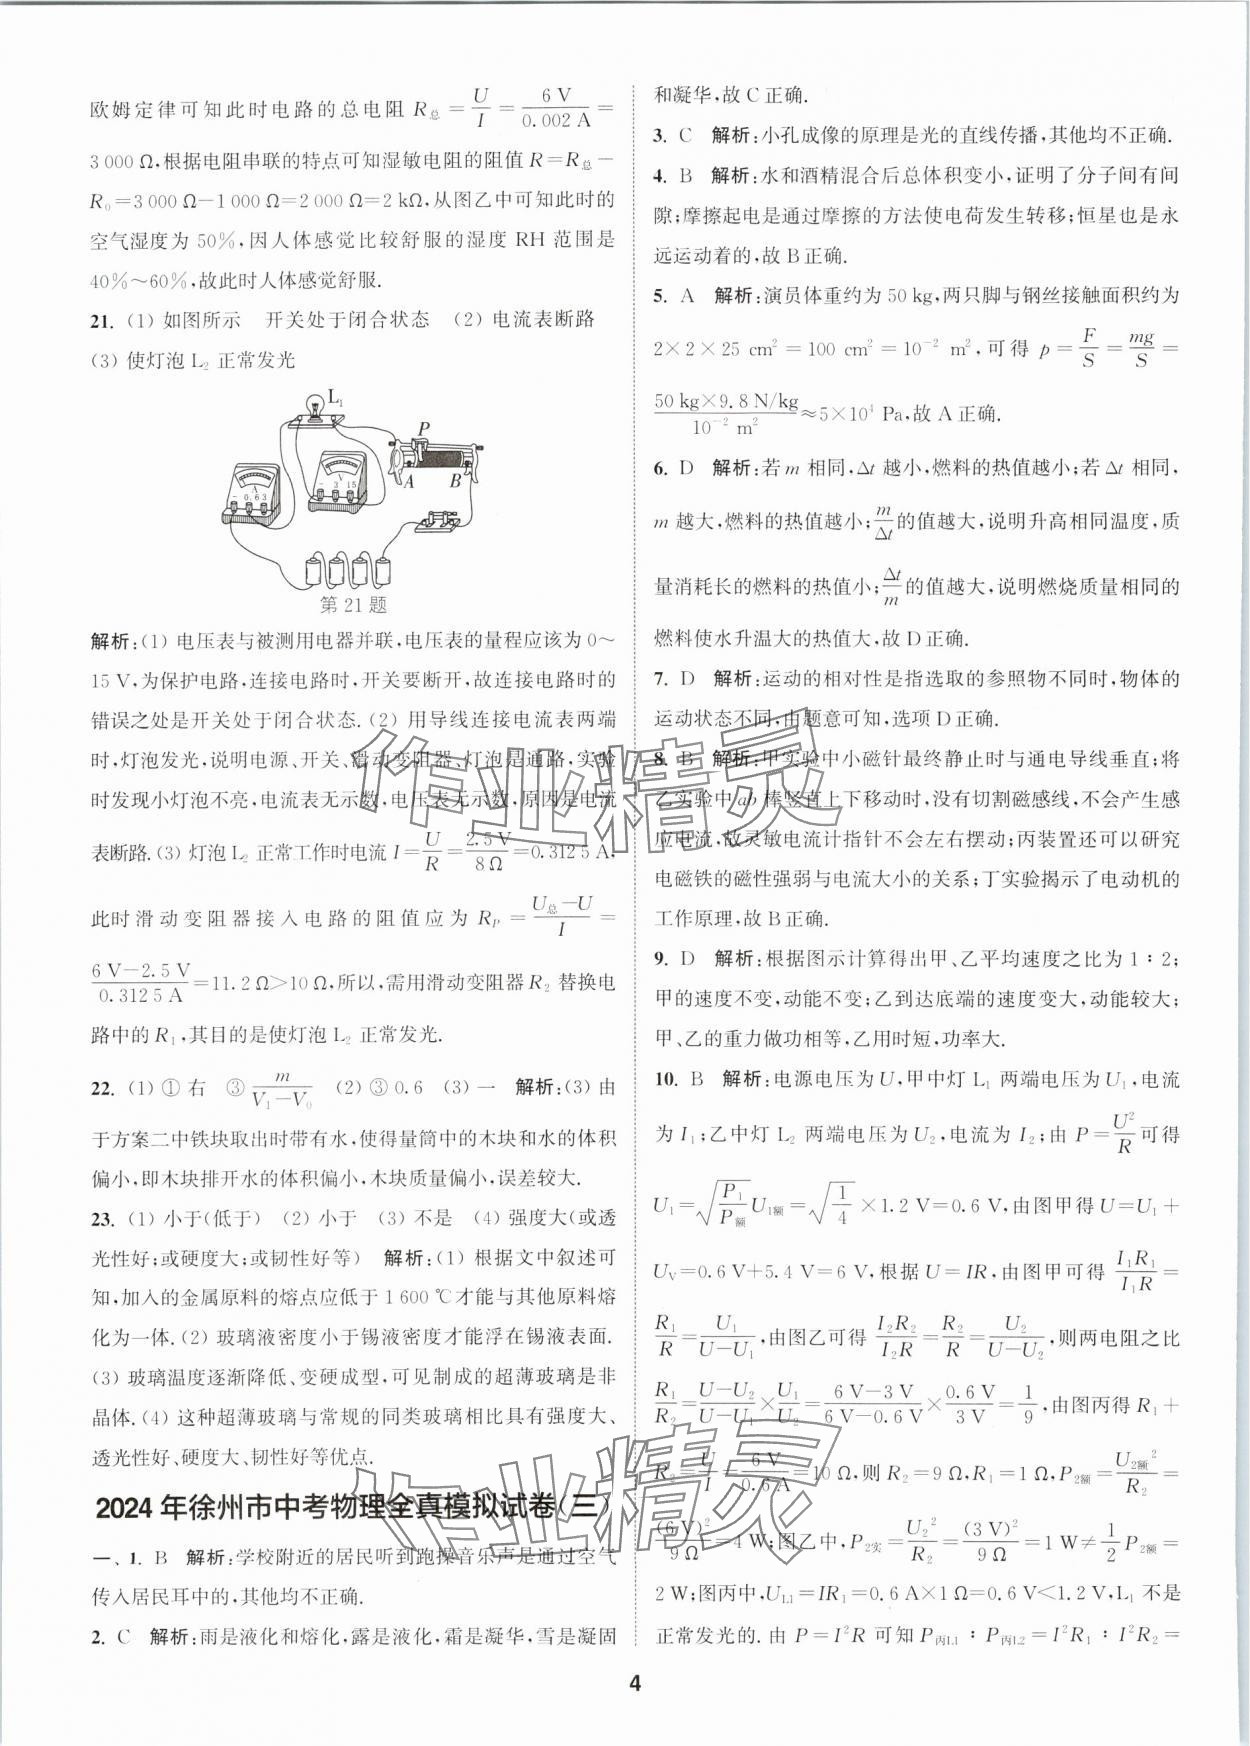 欧姆定律可知此时电路的总电阻 R总 = U/I = 6 V/0.002 A =
3 000 Ω,根据电阻串联的特点可知湿敏电阻的阻值 R=R总−
R₀=3 000 Ω−1 000 Ω=2 000 Ω=2 kΩ,从图乙中可知此时的
空气湿度为 50%,因人体感觉比较舒服的湿度 RH 范围是
40%~60%,故此时人体感觉舒服.
21. (1) 如图所示 开关处于闭合状态 (2) 电流表断路
(3) 使灯泡 L₂ 正常发光
L₁
P
A B
A
− 0.6 3
V
− 3 15
第 21 题
解析:(1) 电压表与被测用电器并联,电压表的量程应该为 0~
15 V,为保护电路,连接电路时,开关要断开,故连接电路时的
错误之处是开关处于闭合状态.(2) 用导线连接电流表两端
时,灯泡发光,说明电源、开关、滑动变阻器、灯泡是通路,实验
时发现小灯泡不亮,电流表无示数,电压表无示数,原因是电流
表断路.(3) 灯泡 L₂ 正常工作时电流 I=U/R=2.5 V/8 Ω=0.312 5 A,
此时滑动变阻器接入电路的阻值应为 R_P = (U总−U)/I =
(6 V−2.5 V)/0.312 5 A=11.2 Ω>10 Ω,所以,需用滑动变阻器 R₂ 替换电
路中的 R₁,其目的是使灯泡 L₂ 正常发光.
22. (1) ① 右 ③ m/(V₁−V₀) (2) ③ 0.6 (3) 一 解析:(3) 由
于方案二中铁块取出时带有水,使得量筒中的木块和水的体积
偏小,即木块排开水的体积偏小,木块质量偏小,误差较大.
23. (1) 小于(低于) (2) 小于 (3) 不是 (4) 强度大(或透
光性好;或硬度大;或韧性好等) 解析:(1) 根据文中叙述可
知,加入的金属原料的熔点应低于 1 600 ℃才能与其他原料熔
化为一体.(2) 玻璃液密度小于锡液密度才能浮在锡液表面.
(3) 玻璃温度逐渐降低、变硬成型,可见制成的超薄玻璃是非
晶体.(4) 这种超薄玻璃与常规的同类玻璃相比具有强度大、
透光性好、硬度大、韧性好等优点.
2024 年徐州市中考物理全真模拟试卷(三)
一、1. B 解析:学校附近的居民听到跑操音乐声是通过空气
传入居民耳中的,其他均不正确.
2. C 解析:雨是液化和熔化,露是液化,霜是凝华,雪是凝固
和凝华,故 C 正确.
3. C 解析:小孔成像的原理是光的直线传播,其他均不正确.
4. B 解析:水和酒精混合后总体积变小,证明了分子间有间
隙;摩擦起电是通过摩擦的方法使电荷发生转移;恒星也是永
远运动着的,故 B 正确.
5. A 解析:演员体重约为 50 kg,两只脚与钢丝接触面积约为
2×2×25 cm²=100 cm²=10⁻² m²,可得 p=F/S=mg/S=
50 kg×9.8 N/kg/10⁻² m²≈5×10⁴ Pa,故 A 正确.
6. D 解析:若 m 相同,Δt 越小,燃料的热值越小;若 Δt 相同,
m 越大,燃料的热值越小;m/Δt 的值越大,说明升高相同温度,质
量消耗长的燃料的热值小;Δt/m 的值越大,说明燃烧质量相同的
燃料使水升温大的热值大,故 D 正确.
7. D 解析:运动的相对性是指选取的参照物不同时,物体的
运动状态不同,由题意可知,选项 D 正确.
8. B 解析:甲实验中小磁针最终静止时与通电导线垂直;将
乙实验中 ab 棒竖直上下移动时,没有切割磁感线,不会产生感
应电流,故灵敏电流计指针不会左右摆动;丙装置还可以研究
电磁铁的磁性强弱与电流大小的关系;丁实验揭示了电动机的
工作原理,故 B 正确.
9. D 解析:根据图示计算得出甲、乙平均速度之比为 1∶2;
甲的速度不变,动能不变;乙到达底端的速度变大,动能较大;
甲、乙的重力做功相等,乙用时短,功率大.
10. B 解析:电源电压为 U,甲中灯 L₁ 两端电压为 U₁,电流
为 I₁;乙中灯 L₂ 两端电压为 U₂,电流为 I₂;由 P=U²/R 可得
U₁=√(P₁/P额) U₁额=√(1/4)×1.2 V=0.6 V,由图甲得 U=U₁+
U_V=0.6 V+5.4 V=6 V,根据 U=IR,由图甲可得 I₁R₁/I₁R=
R₁/R=U₁/(U−U₁),由图乙可得 I₂R₂/I₂R=R₂/R=U₂/(U−U₂),则两电阻之比
R₁/R₂=(U−U₂)/(U−U₁)×U₁/U₂=(6 V−3 V)/(6 V−0.6 V)×0.6 V/3 V=1/9,由图丙得 R₁+
R₂=U/I=6 V/0.6 A=10 Ω,则 R₂=9 Ω,R₁=1 Ω,P₂额=U₂额²/R₂=
(6 V)²/9 Ω=4 W;图乙中,P₂实=U₂²/R₂=(3 V)²/9 Ω=1 W≠1/2 P₂额=
2 W;图丙中,U_L1=IR₁=0.6 A×1 Ω=0.6 V<1.2 V,L₁ 不是
正常发光的.由 P=I²R 可知 P丙L1∶P丙L2=I²R₁∶I²R₂=
作业精灵
作业精灵
4